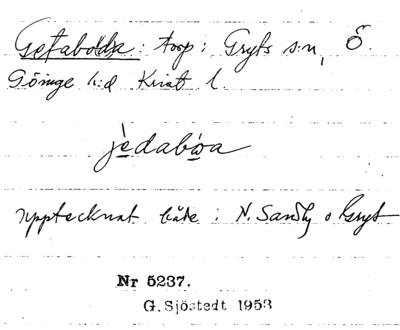 Getabolda: torp i Gryts s:n, Ö.
Göinge h:d Krist l.
jèdabówa
Upptecknat både i N. Sandby o Gryt
Nr 5237.
G. Sjöstedt 1953